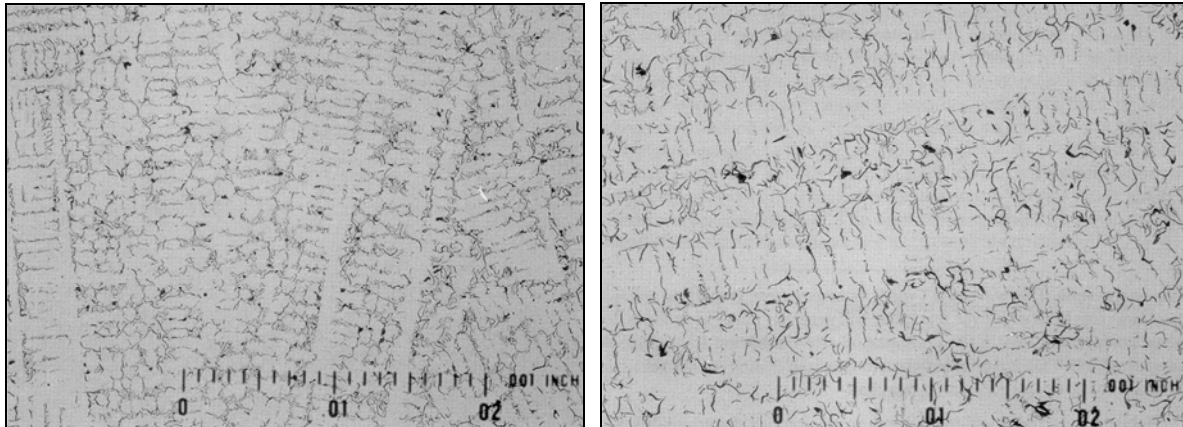 .001 INCH
0 01 02
.001 INCH
0 01 02